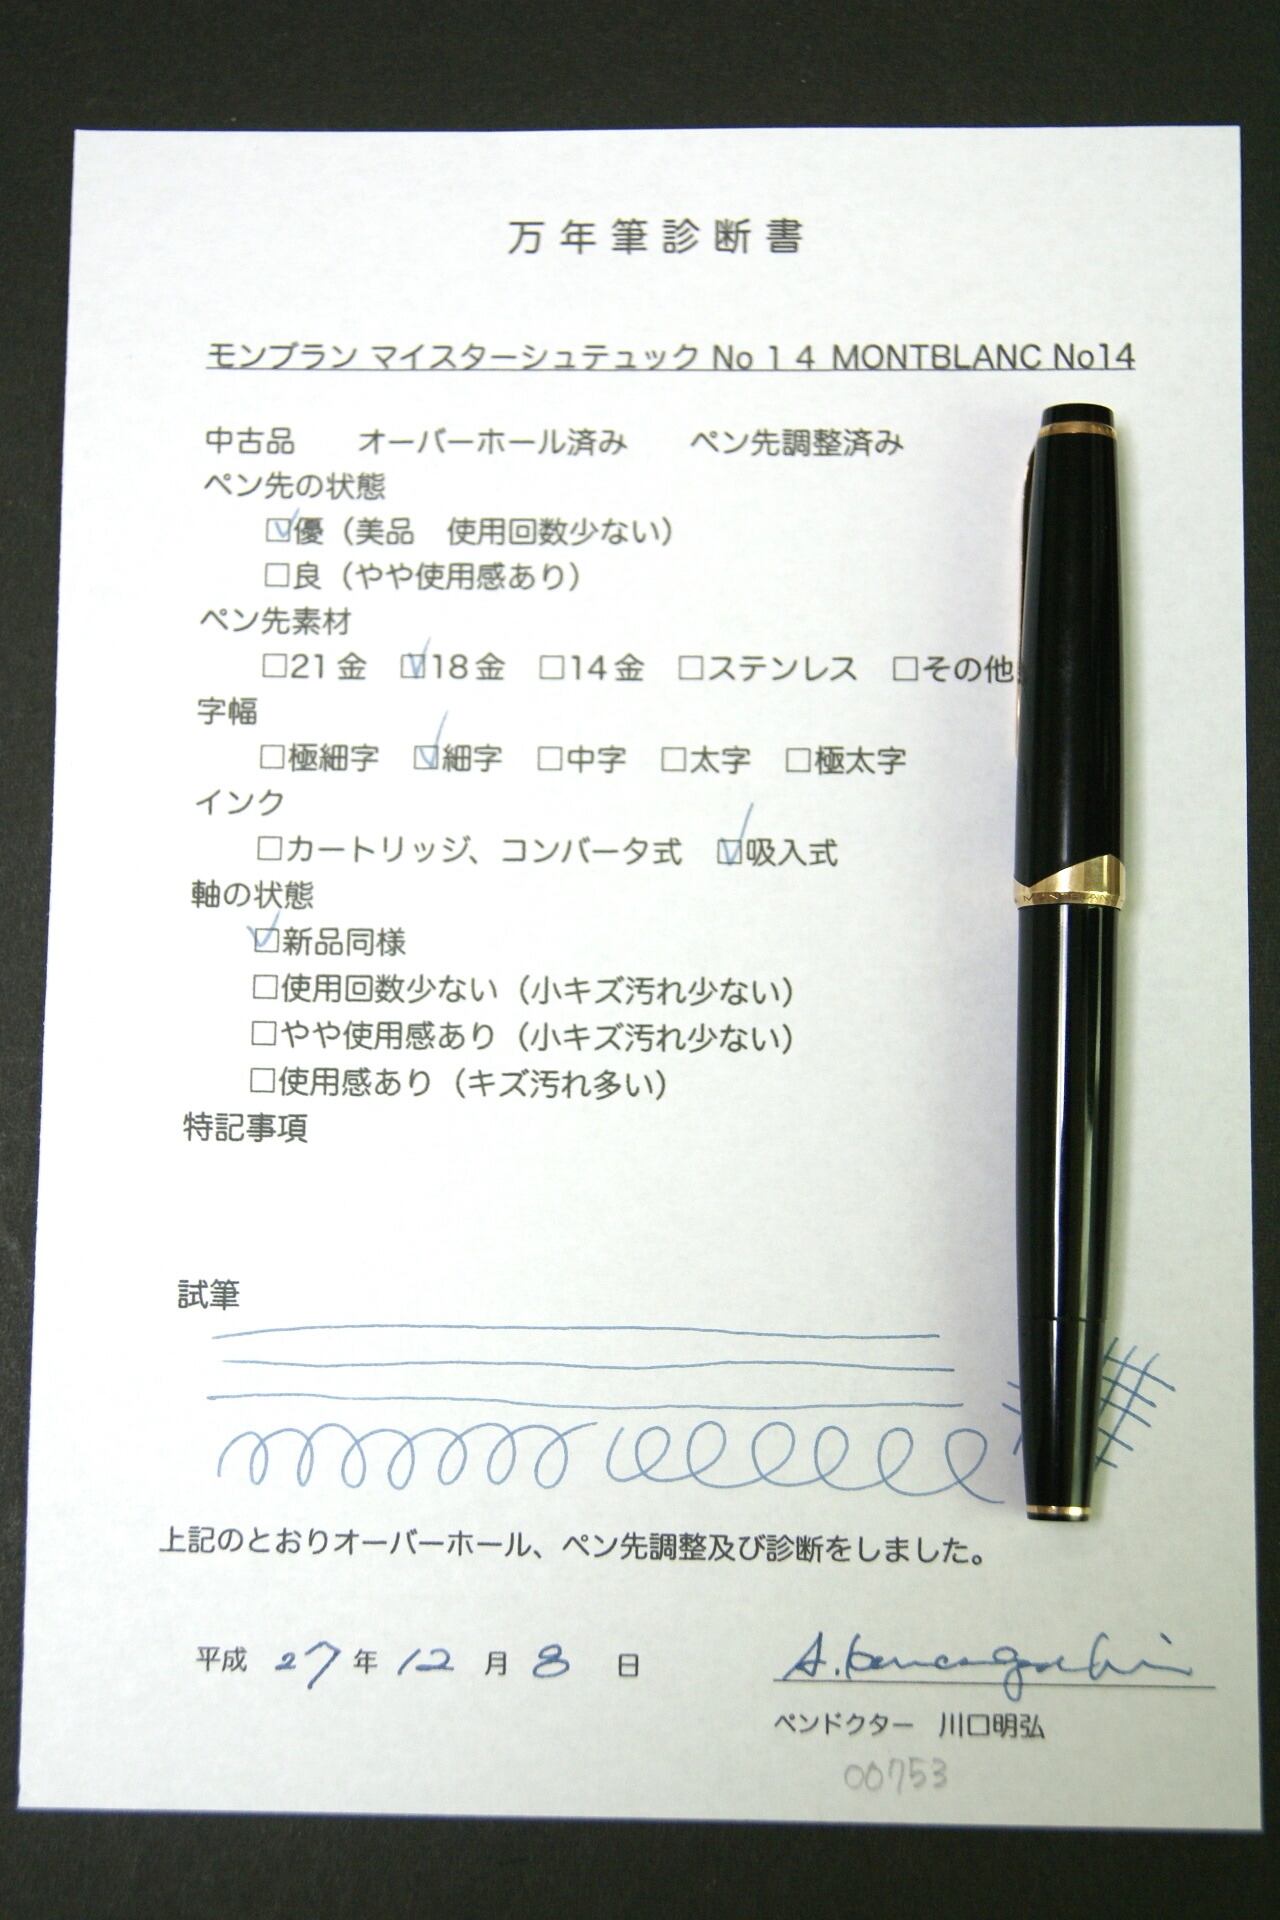 万年筆診断書
モンブラン マイスターシュテュック No 1 4 MONTBLANC No14
中古品　オーバーホール済み　ペン先調整済み
ペン先の状態
☑優（美品　使用回数少ない）
□良（やや使用感あり）
ペン先素材
□21金　☑18金　□14金　□ステンレス　□その他
字幅
□極細字　☑細字　□中字　□太字　□極太字
インク
□カートリッジ、コンバータ式　☑吸入式
軸の状態
☑新品同様
□使用回数少ない（小キズ汚れ少ない）
□やや使用感あり（小キズ汚れ少ない）
□使用感あり（キズ汚れ多い）
特記事項
試筆
上記のとおりオーバーホール、ペン先調整及び診断をしました。
平成 27 年 12 月 8 日
ペンドクター　川口明弘
00753